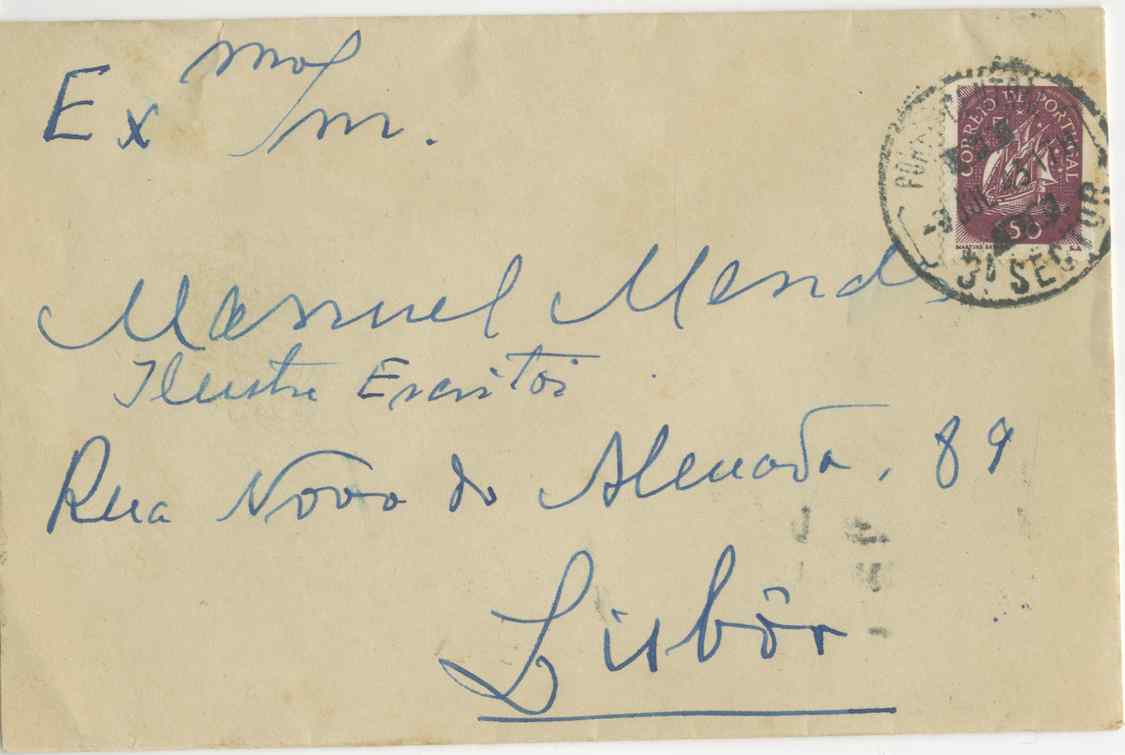 Ex mo Snr.
Manuel Mendes
Ilustre Escritor
Rua Nova do Almada, 89
Lisbôa
CORREIO DE PORTUGAL
$50
3º SECTOR